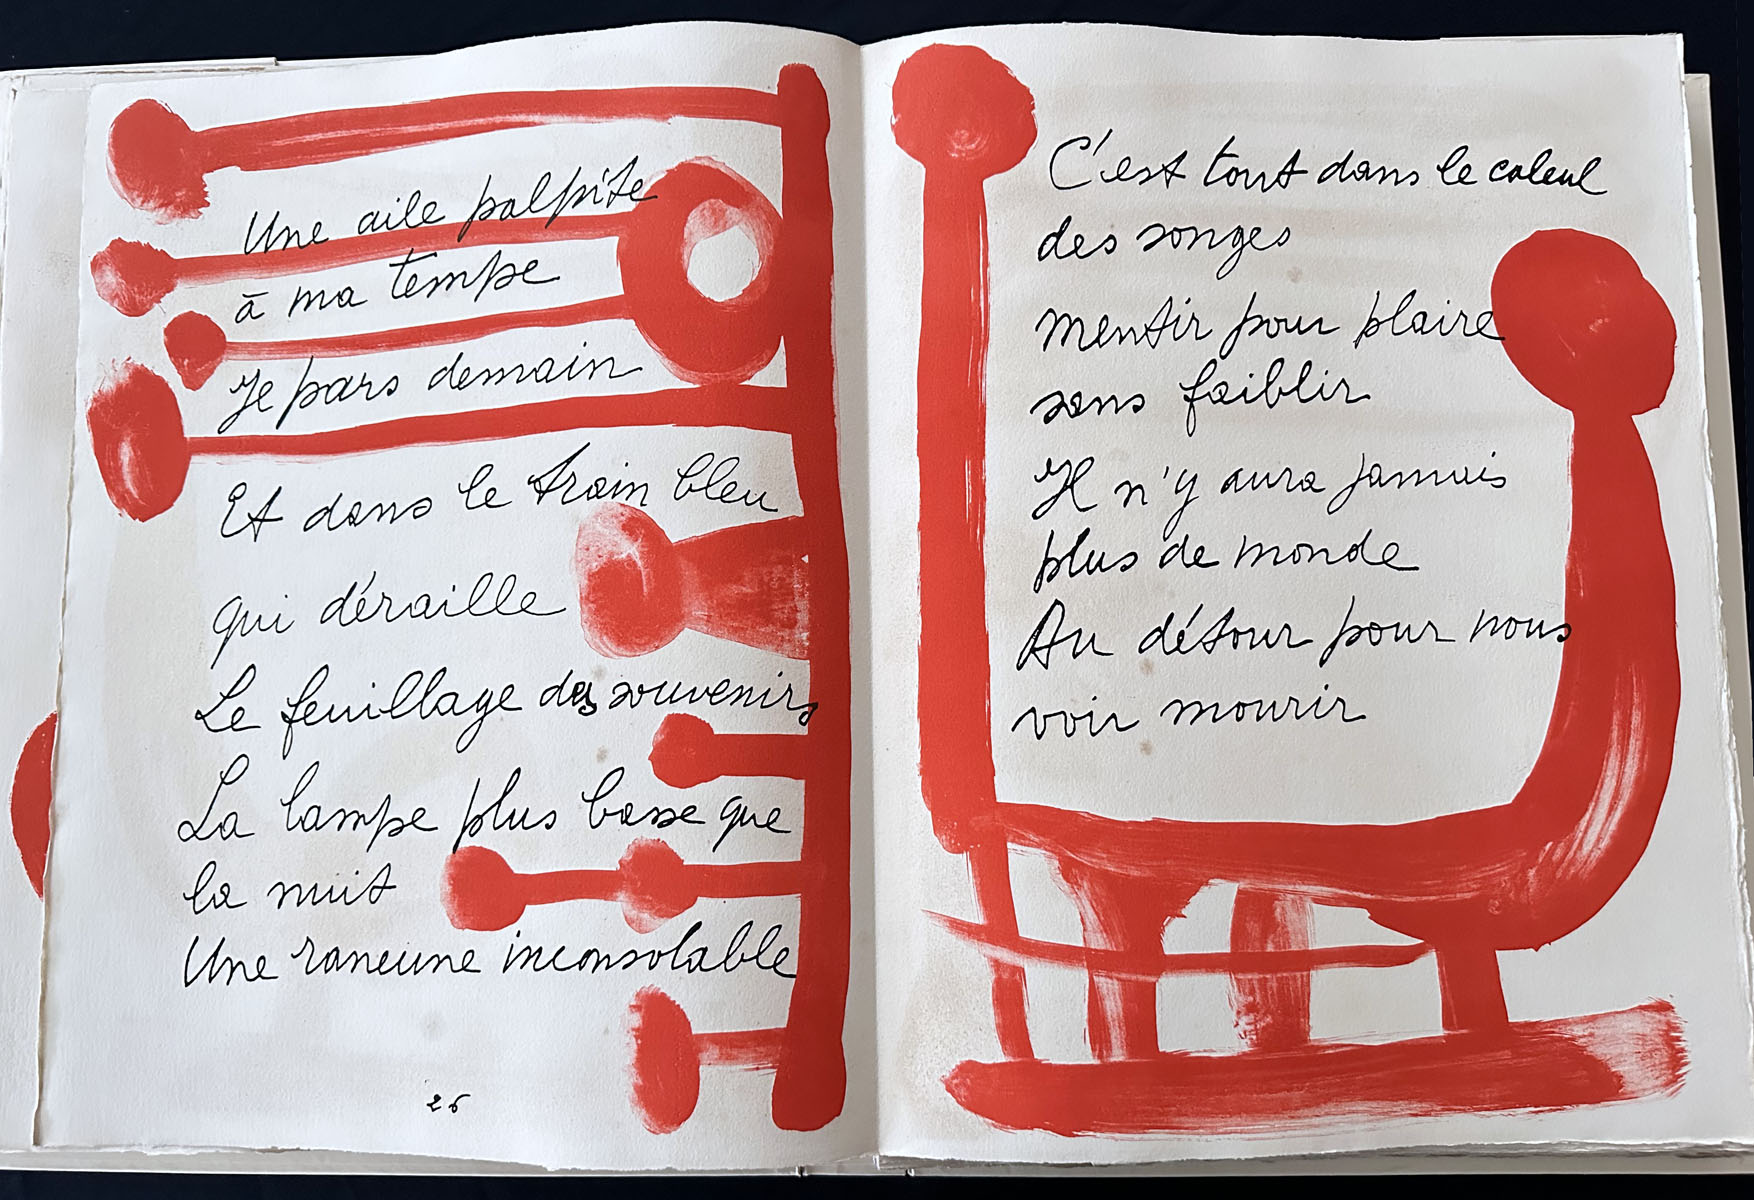 Une aile palpite
à ma tempe
Je pars demain
Et dans le train bleu
qui déraille
Le feuillage des souvenirs
La lampe plus basse que
la nuit
Une rancune inconsolable
26
C'est tout dans le calcul
des songes
mentir pour plaire
sans faiblir
Il n'y aura jamais
plus de monde
Au détour pour nous
voir mourir